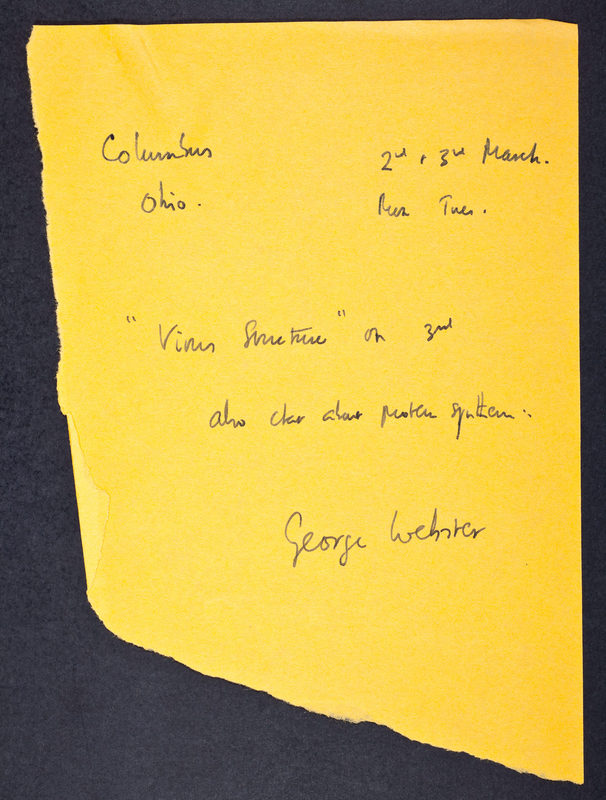 Columbus 2nd + 3rd March.
Ohio. Mon Tues.
"Virus Structure" on 3rd
also chat about protein synthesis.
George Webster